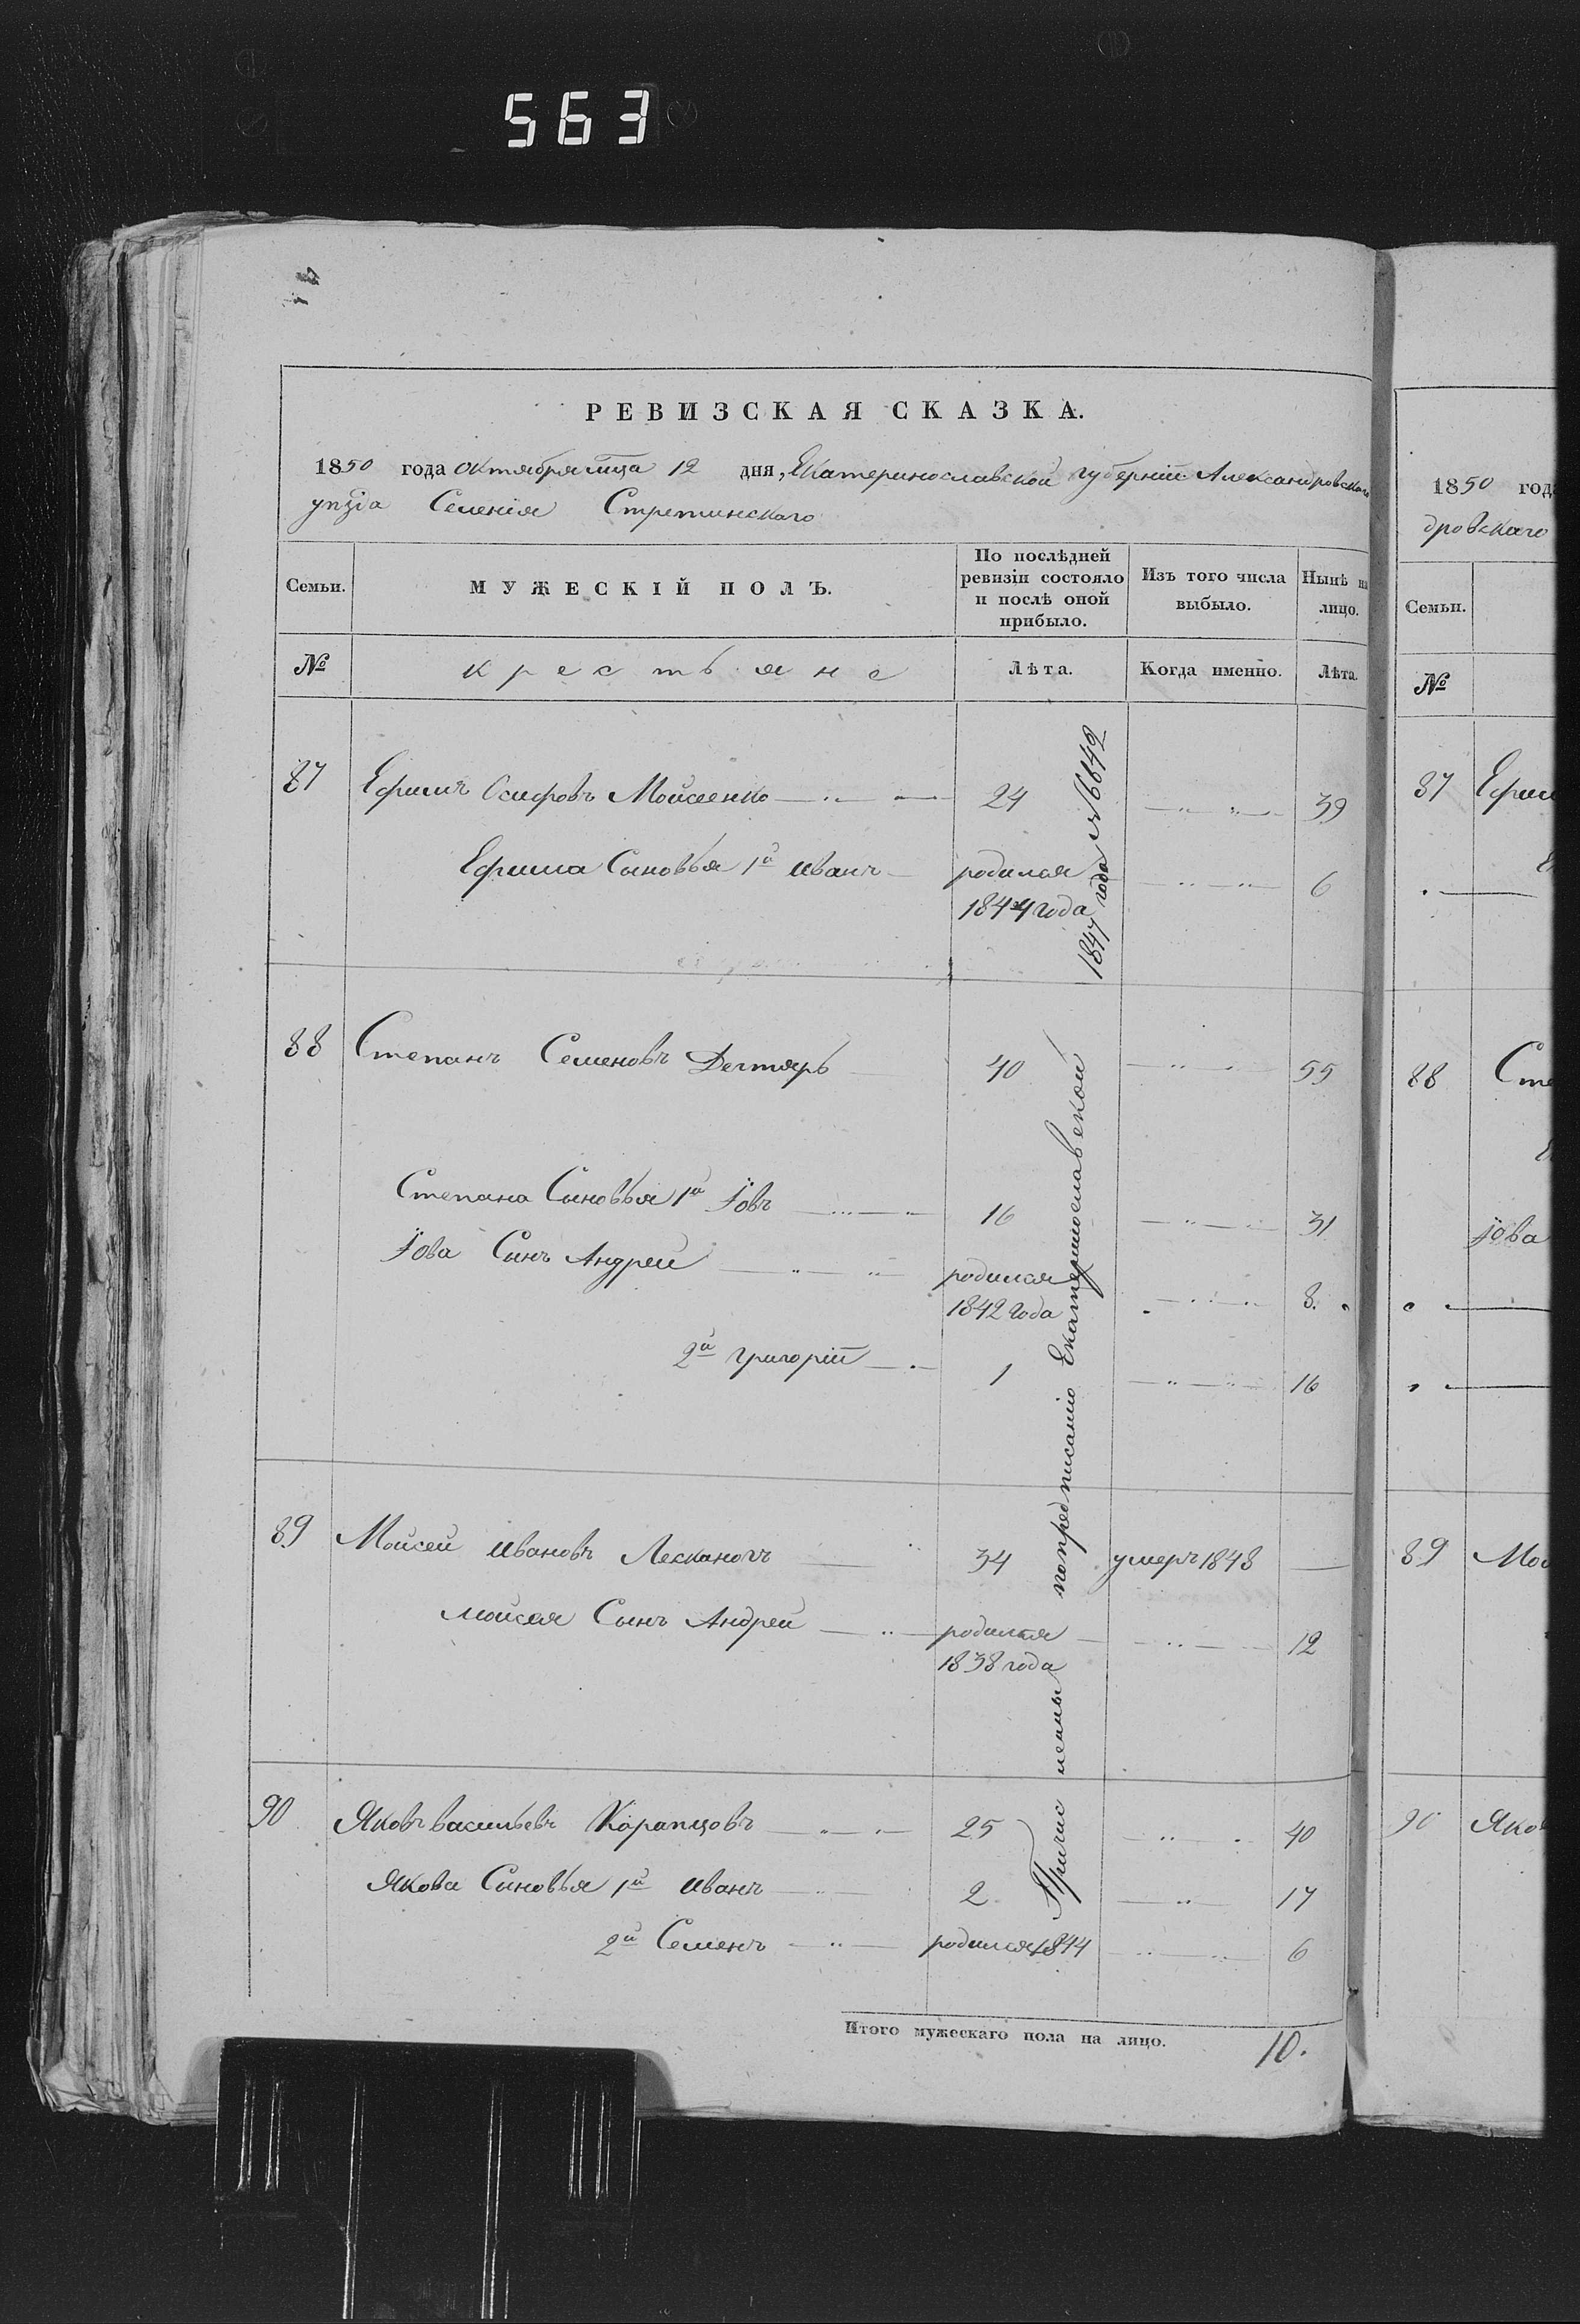 563
РЕВИЗСКАЯ СКАЗКА.
1850 года октября мца 12 дня, Екатеринославской губерніи Александровскаго
уѣзда Селенія Стретинскаго
Семьи.
МУЖЕСКІЙ ПОЛЪ.
По послѣдней ревизіи состояло и послѣ оной прибыло.
Изъ того числа выбыло.
Нынѣ на лицо.
№
крестьяне
Лѣта.
Когда именно.
Лѣта.
87 Ефимъ Осифовъ Мойсеенко 24 39
Ефима Сыновья 1й Иванъ родился 6
1844 года
88 Степанъ Семеновъ Дегтярь 40 55
Степана Сыновья 1й Іовъ 16 31
Іова Сынъ Андрей родился 8.
1842 года
2й Григорій 1 16
89 Мойсей Ивановъ 34 умеръ 1848
Мойсея Сынъ Андрей родился 12
1838 года
90 Яковъ Васильевъ 25 40
Якова Сыновья 1й Иванъ 2 17
2й Семенъ родился 1844 6
Причис лены по предписанію Екатеринославской
1847 года № 6642
Итого мужескаго пола на лицо. 10.
1850 года
дровскаго
Семьи.
№
87 Ефим
88 Сте
Іова
89 Мой
90 Яков